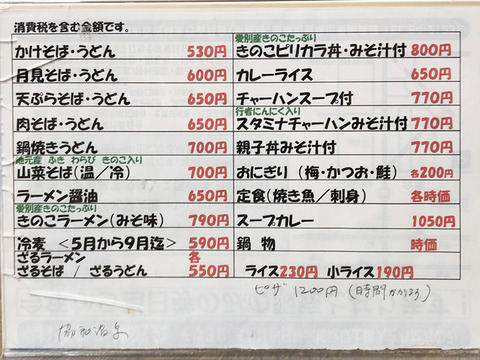 消費税を含む金額です。
かけそば・うどん 530円
月見そば・うどん 600円
天ぷらそば・うどん 650円
肉そば・うどん 650円
鍋焼きうどん 700円
地元産 ふき わらび きのこ入り
山菜そば(温/冷) 700円
ラーメン醤油 650円
愛別産きのこたっぷり
きのこラーメン(みそ味) 790円
冷麦 <5月から9月迄> 590円
ざるラーメン 各
ざるそば / ざるうどん 550円
愛別産きのこたっぷり
きのこピリカラ丼・みそ汁付 800円
カレーライス 650円
チャーハンスープ付 770円
行者にんにく入り
スタミナチャーハンみそ汁付 770円
親子丼みそ汁付 770円
おにぎり (梅・かつお・鮭) 各200円
定食(焼き魚/刺身) 各時価
スープカレー 1050円
鍋 物 時価
ライス230円 小ライス190円
ピザ 1200円 (時間かかります)
協和温泉